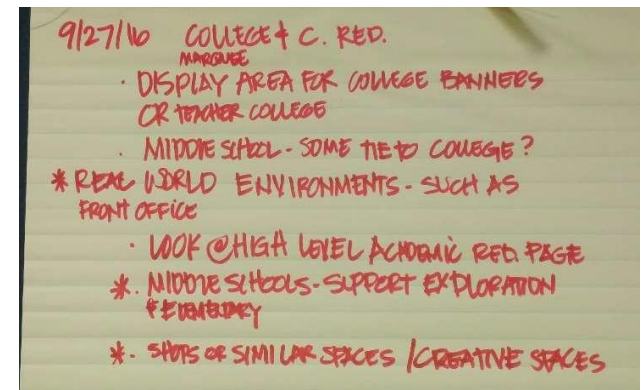 9/27/16 COLLEGE & C. RED.
MARQUEE
· DISPLAY AREA FOR COLLEGE BANNERS
OR TEACHER COLLEGE
· MIDDLE SCHOOL - SOME TIE TO COLLEGE?
* REAL WORLD ENVIRONMENTS - SUCH AS
FRONT OFFICE
· LOOK @ HIGH LEVEL ACADEMIC RED. PAGE
*· MIDDLE SCHOOLS - SUPPORT EXPLORATION
& ELEMENTARY
*· SHOPS OR SIMILAR SPACES / CREATIVE SPACES